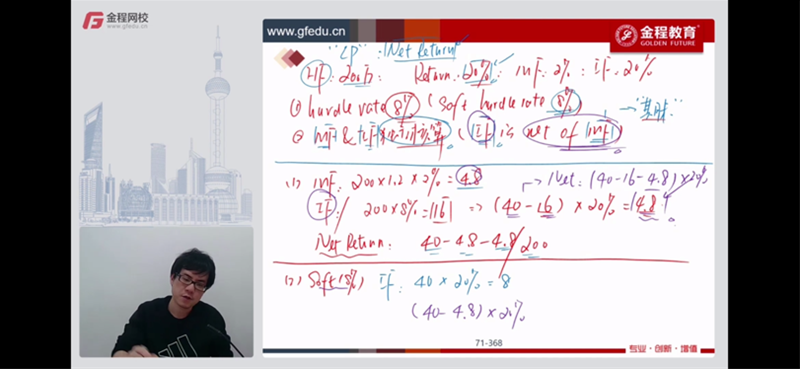 金程网校
www.gfedu.cn
www.gfedu.cn
金程教育
GOLDEN FUTURE
"LP" : Net Return
HF: 200万: Return: 20% : mf: 2% : If: 20%
① hurdle rate 8% (Soft hurdle rate 8%)
② mf & If 独立计算 (If is net of mf)
(1) mf: 200×1.2×2% = 4.8
Net: (40-16-4.8)×20%
If: 200×8% = 16 ⇒ (40-16)×20% = 4.8
Net Return: 40-4.8-4.8/200
(2) Soft(8%) If: 40×20% = 8
(40-4.8)×20%
71-368
专业·创新·增值